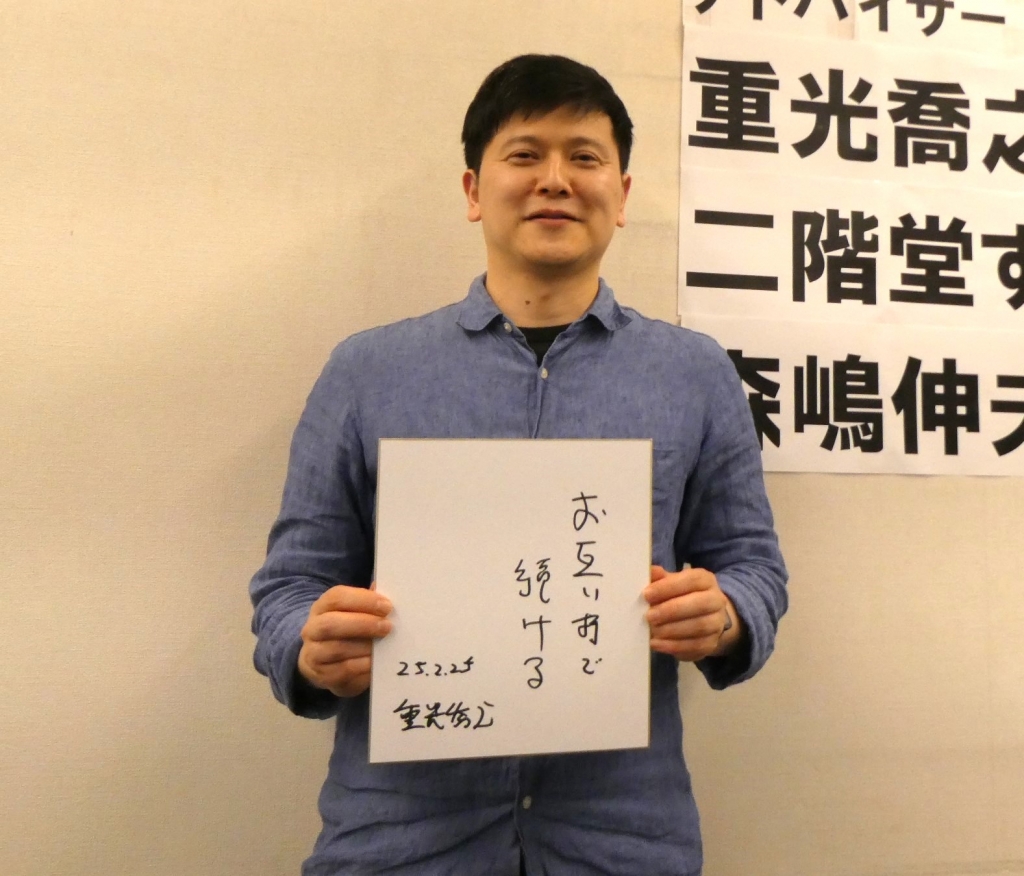 アドバイザー
重光喬之
二階堂
森嶋伸夫
お互い で
続ける
25.2.25
重光喬之